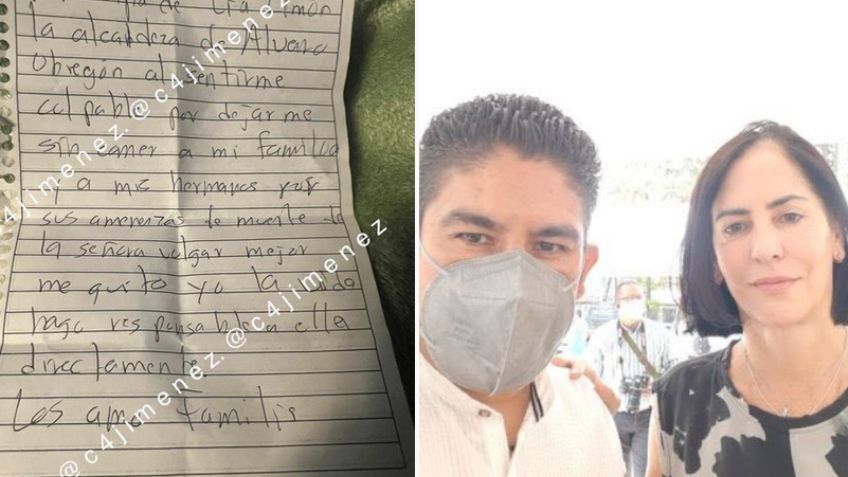 de Lia Limon
la alcaldeza de Alvaro
Obregón al sentirme
culpable por dejarme
sin comer a mi familia
y a mis hermanos por
sus amenenzas de muerte de
la señora vulgar mejor
me quito yo la vida
hago responsable a ella
directamente
Los amo familis
@c4jimenez.@c4jimenez
@c4jimenez.@c4jimenez
@c4jimenez.@c4jimenez